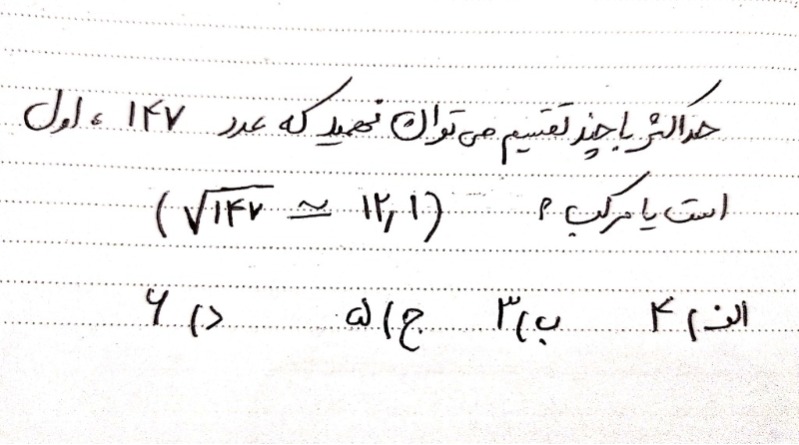 حداکثر با چند تقسیم می‌توان فهمید که عدد ۱۴۷ ، اول
است یا مرکب ؟ (√۱۴۷ ≃ ۱۲٫۱)
الف) ۴ ب) ۳ ج) ۵ د) ۶